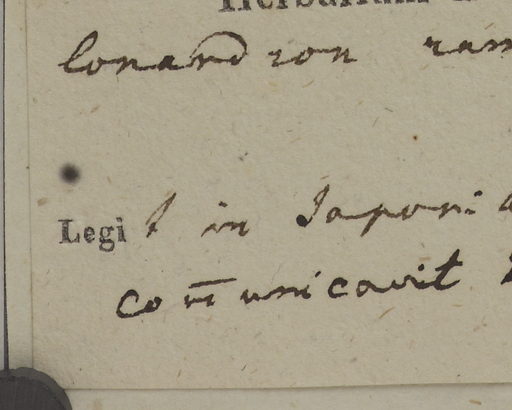 Herbarium
Conandron ram
Legit in Japonia
Com̅unicavit